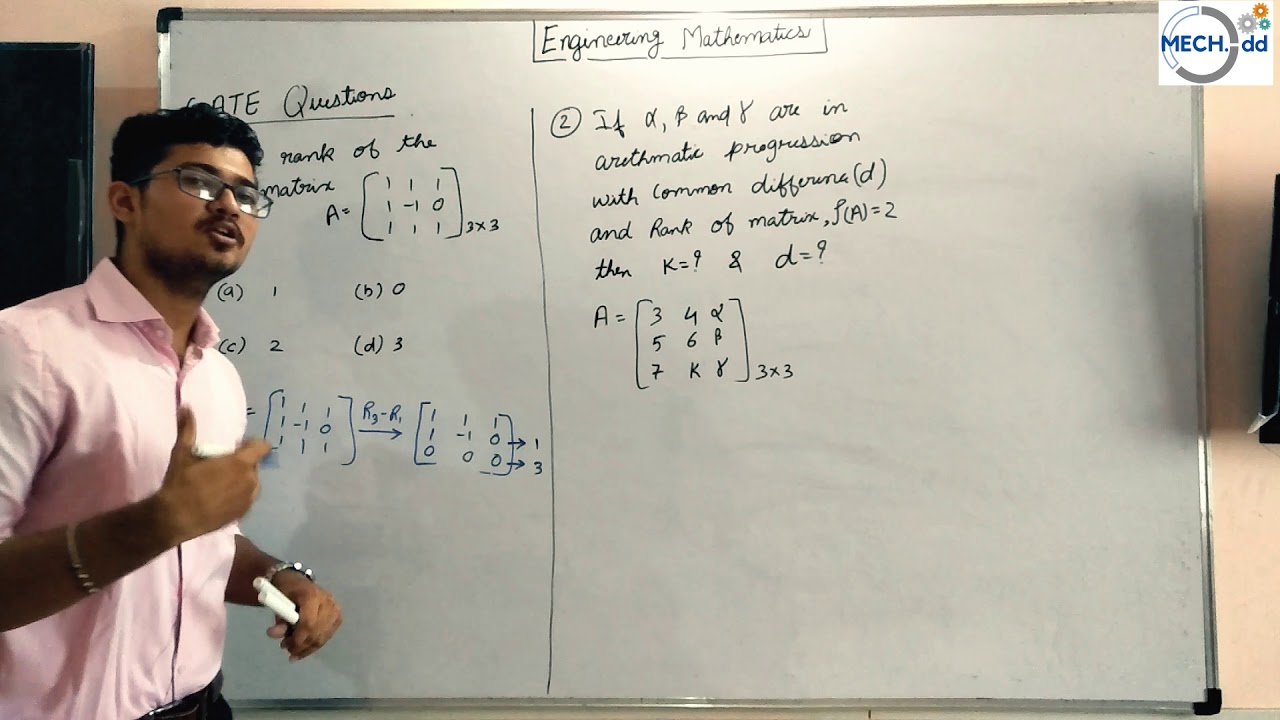 MECH.dd
Engineering Mathematics
GATE Questions
rank of the
matrix
A = [1 1 1
1 -1 0
1 1 1] 3×3
(a) 1 (b) 0
(c) 2 (d) 3
= [1 1 1
1 -1 0
1 1 1] R3-R1 → [1 1 1
1 -1 0 → 1
0 0 0] → 3
② If α, β and γ are in
arethmatic progression
with Common differena (d)
and Rank of matrix, ρ(A)=2
then K=? & d=?
A = [3 4 α
5 6 β
7 K γ] 3×3